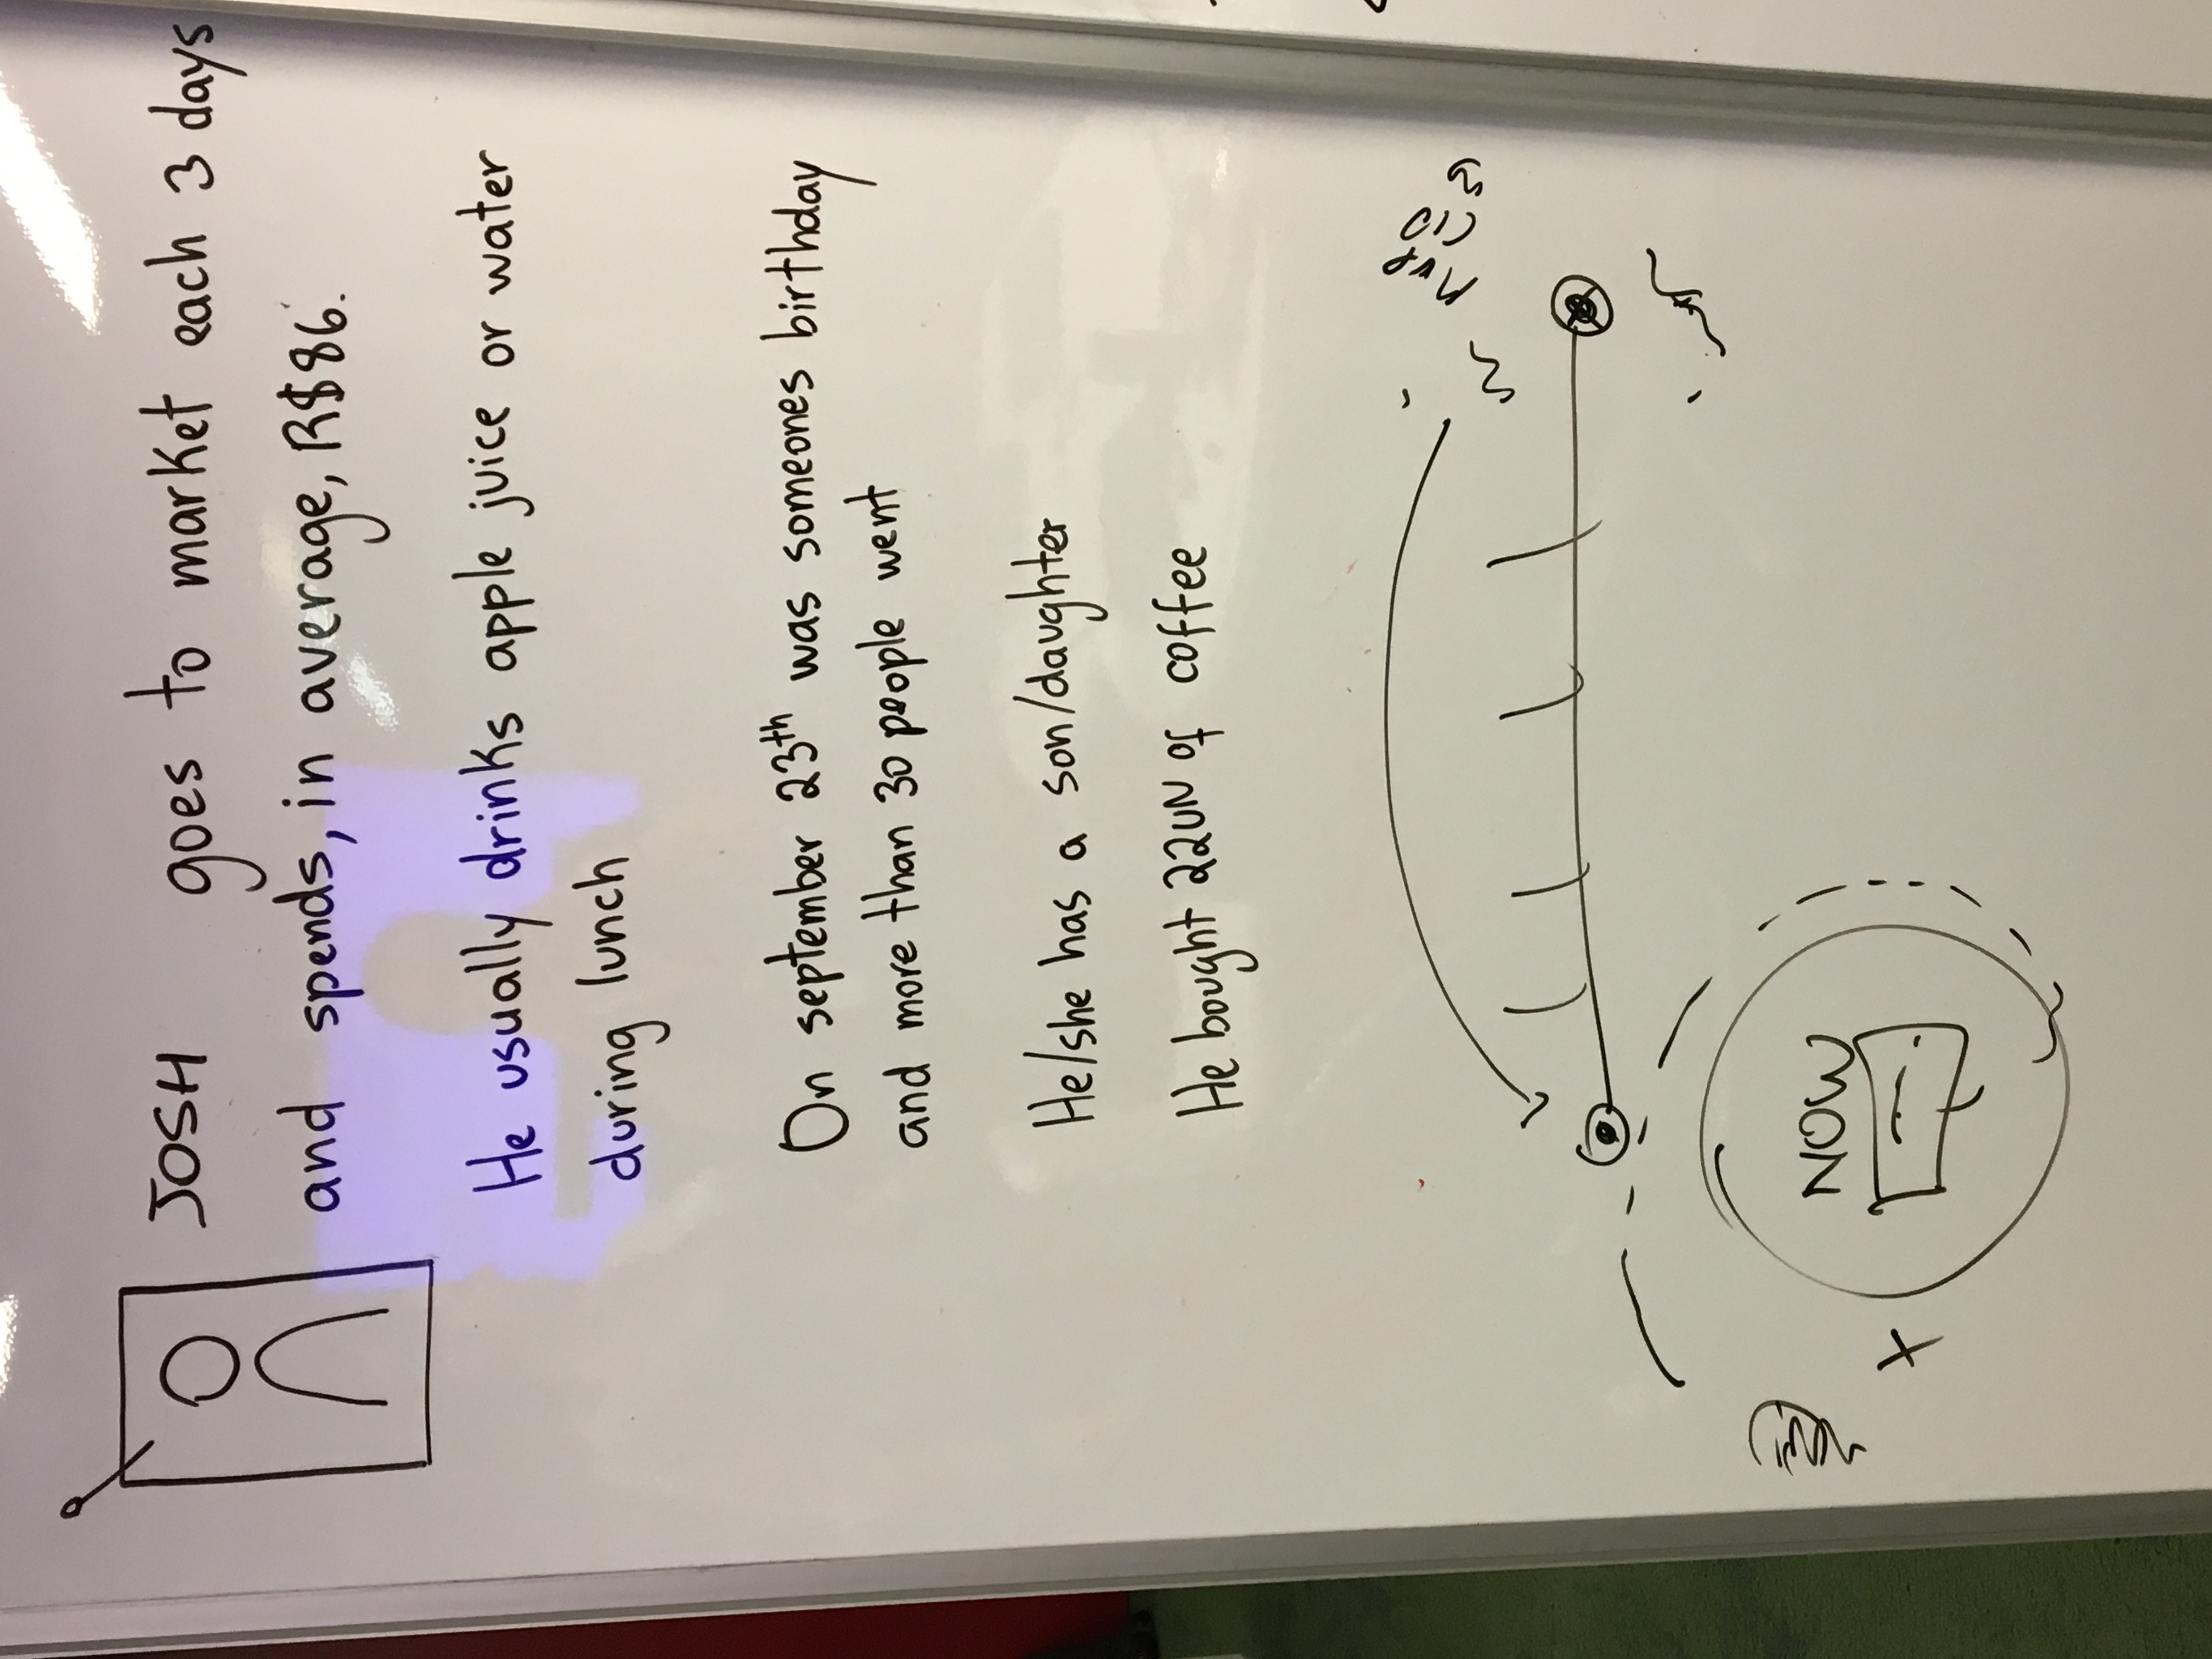 JOSH goes to market each 3 days
and spends, in average, R$86.
He usually drinks apple juice or water
during lunch
On september 23th was someones birthday
and more than 30 people went
He/she has a son/daughter
He bought 22UN of coffee
NOW
+